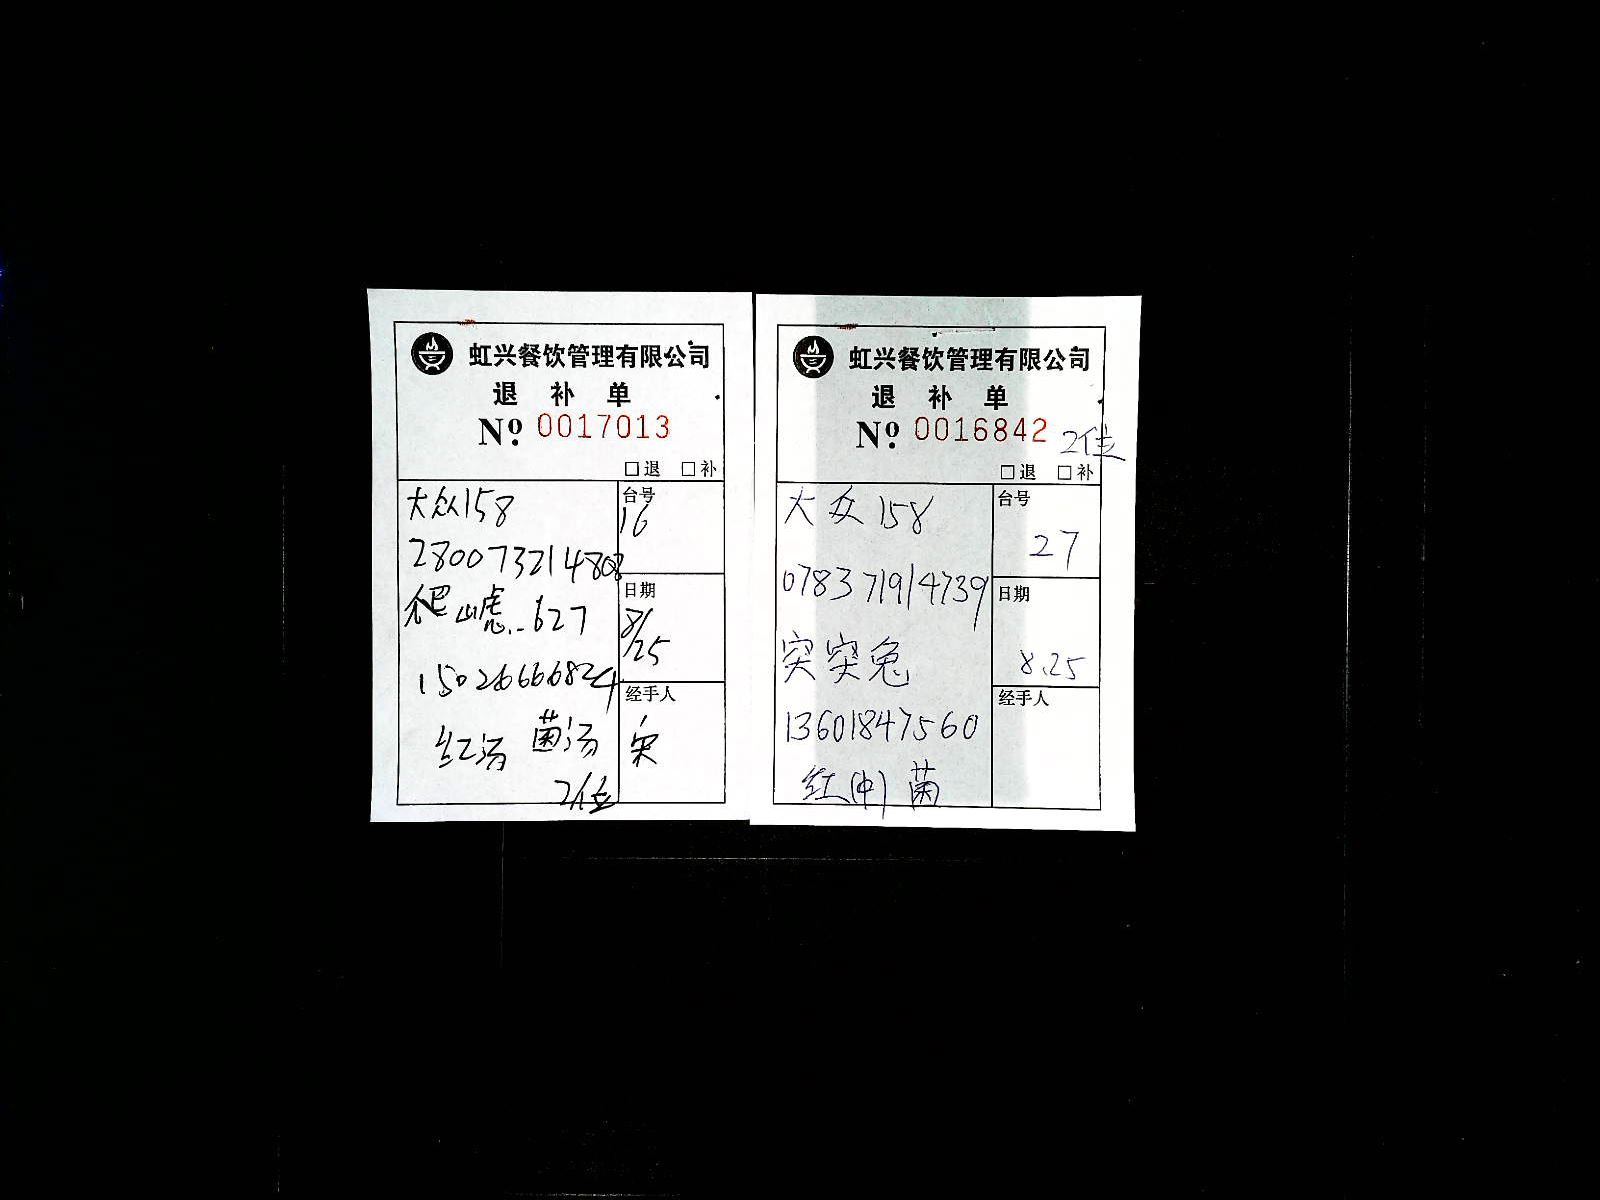 虹兴餐饮管理有限公司
退 补 单
Nº 0017013
□退 □补
大众158
280073214808
爬山虎..627
15026666824
红汤 菌汤
2位
台号
16
日期
8/25
经手人
宋
虹兴餐饮管理有限公司
退 补 单
Nº 0016842
2位
□退 □补
大众158
078371914739
突突兔
13601847560
红(中) 菌
台号
27
日期
8.25
经手人